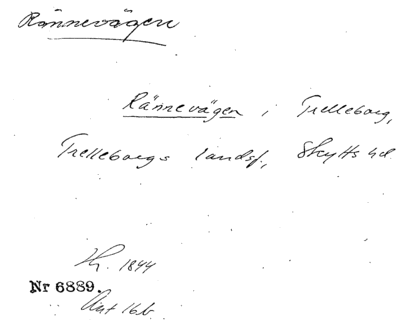 Rännevägen
Rännevägen i Trelleborg,
Trelleborgs landsf., Skytts hd.
1844
Nr 6889.
16b